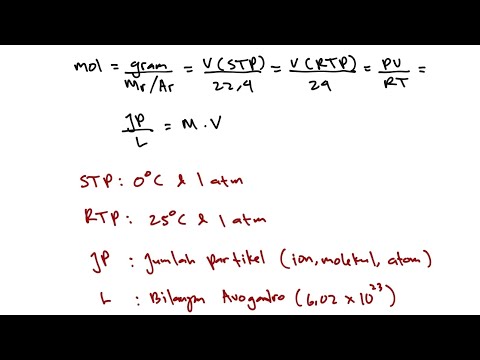 mol = gram/Mr/Ar = V(STP)/22,4 = V(RTP)/24 = PV/RT =
JP/L = M . V
STP : 0°C & 1 atm
RTP : 25°C & 1 atm
JP : Jumlah partikel (ion, molekul, atom)
L : Bilangan Avogadro (6,02 x 10²³)